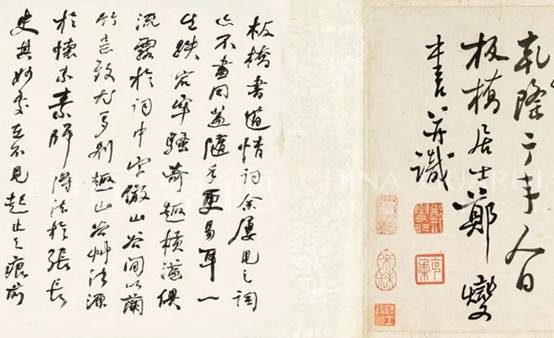 乾隆人日
板橋居士鄭燮
書并識
板橋書道情詞余屢見之詞
亦不盡同蓋隨手更易耳一
生跌宕牢騷奇趣橫溢俱
流露於詞中字倣山谷間以蘭
竹意致尤多別趣山谷艸法源
於懷素師得法於張長
史其妙處在不見起止之痕前
CHINA